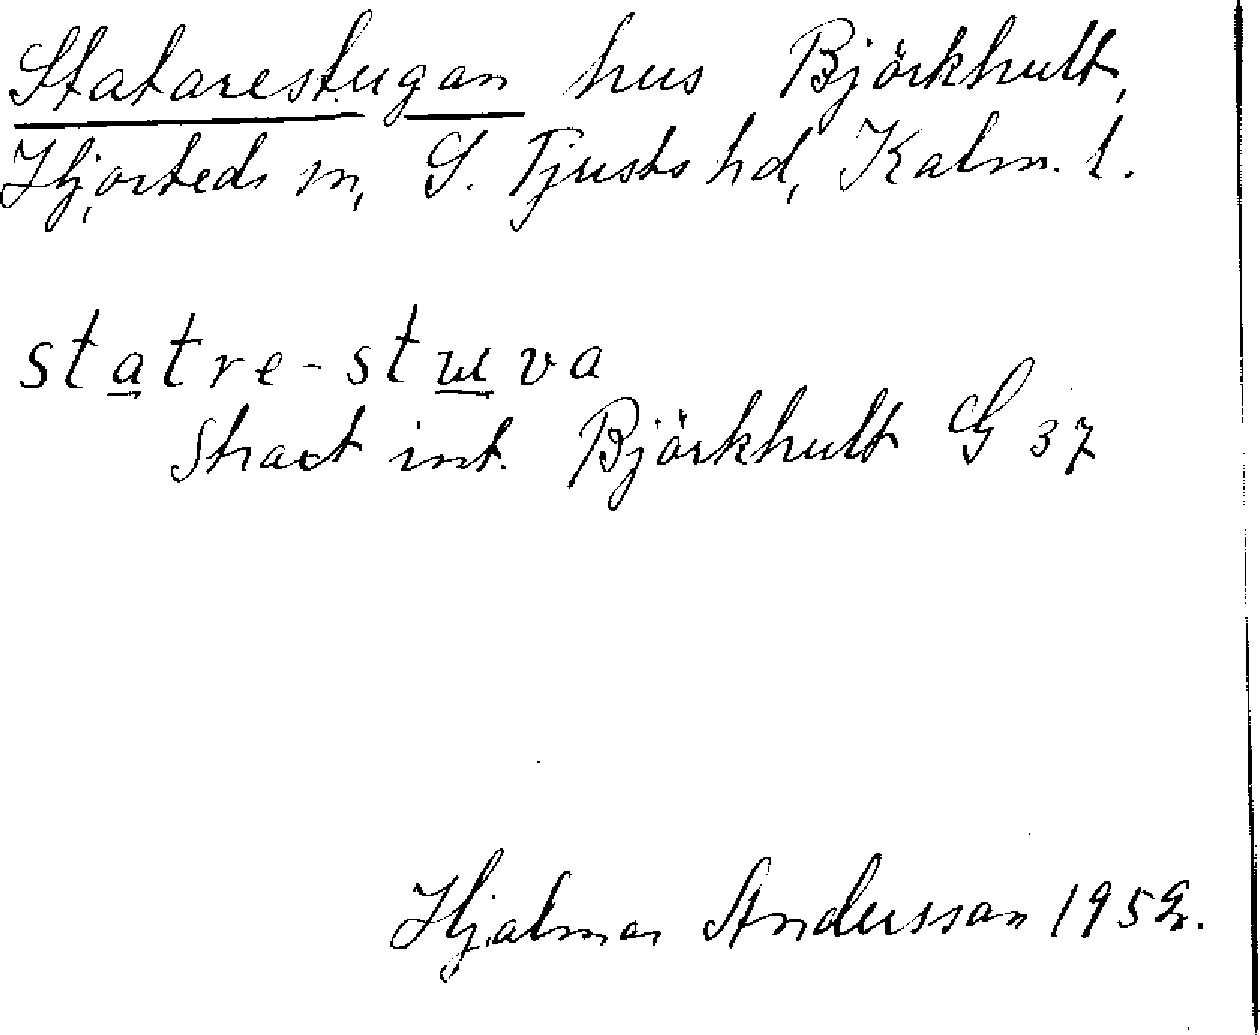 Statarestugan hus Björkhult,
Hjorteds sn, S. Tjusts hd, Kalm. l.
statre-stuva
Strax int. Björkhult G 37
Hjalmar Andersson 1952.